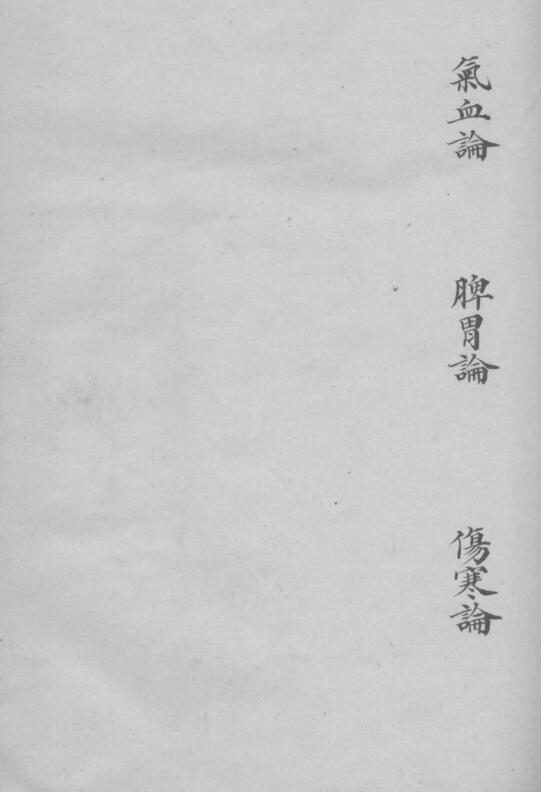 氣血論　脾胃論　傷寒論